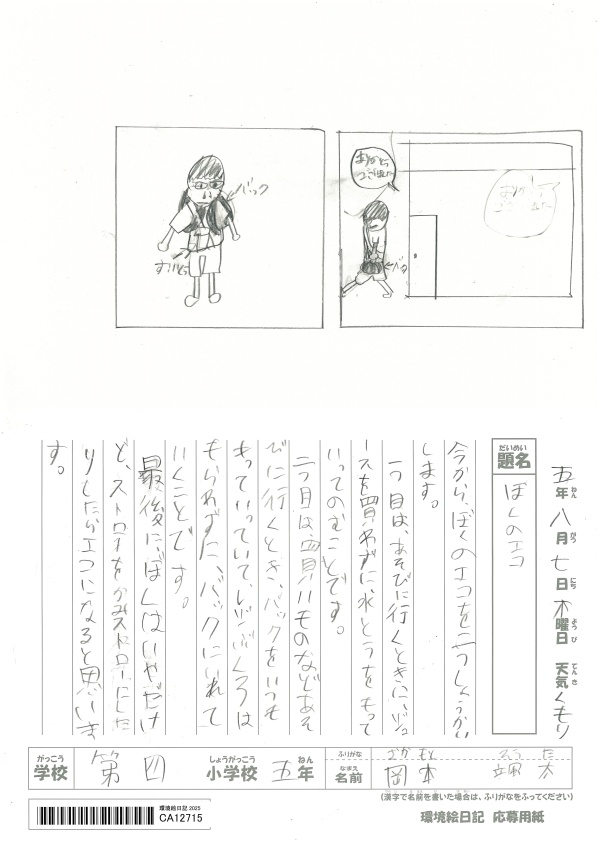 ありがとう
ございました
バック
すいとう
五年八月七日木曜日 天気くもり
ねん がつ にち ようび てんき
だいめい
題名 ぼくのエコ
今から、ぼくのエコを二つしょうかい
します。
一つ目は、あそびに行くときに、ジュ
ースを買わずに、水とうをもって
いってのむことです。
二つ目は、買いものなどあそ
びに行くとき、バックをいつも
もっていっていて、レジぶくろは
もらわずに、バックにいれて
いくことです。
最後に、ぼくはいやだけ
ど、ストローをかみストローにした
りしたらエコになると思いま
す。
がっこう しょうがっこう ねん ふりがな おかもと た
学校 第四 小学校 五年 なまえ 名前 岡本 太
(漢字で名前を書いた場合は、ふりがなをふってください)
環境絵日記 2025
CA12715
環境絵日記 応募用紙